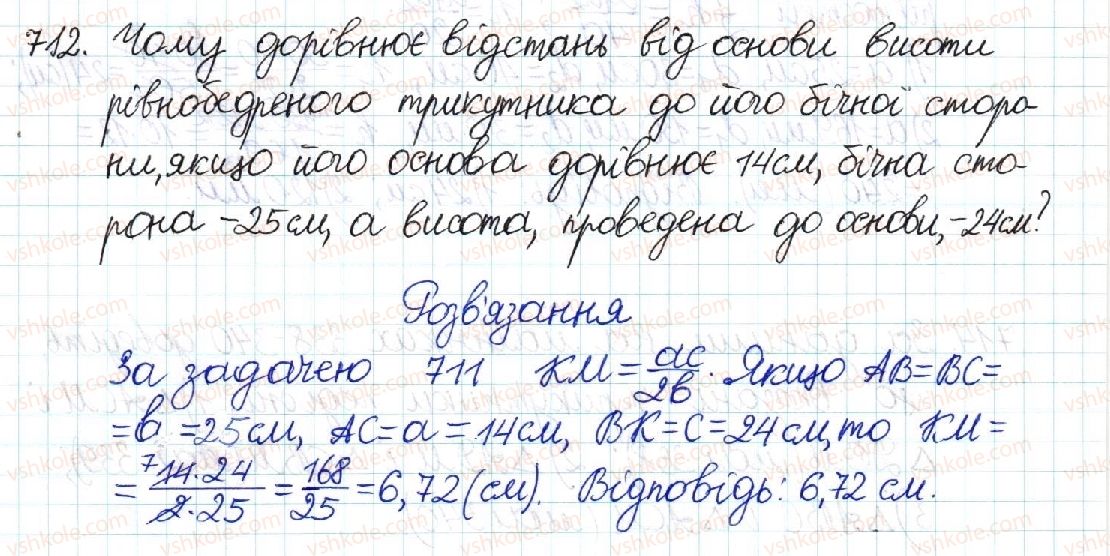 712. Чому дорівнює відстань від основи висоти
рівнобедреного трикутника до його бічної сторо-
ни, якщо його основа дорівнює 14см, бічна сто-
рона -25см, а висота, проведена до основи, -24см?
Розв'язання
За задачею 711 KM = ac/2b. Якщо AB=BC=
=b=25см, AC=a=14см, BK=c=24см, то KM=
= 7 14·24/2·25 = 168/25 = 6,72(см). Відповідь: 6,72 см.